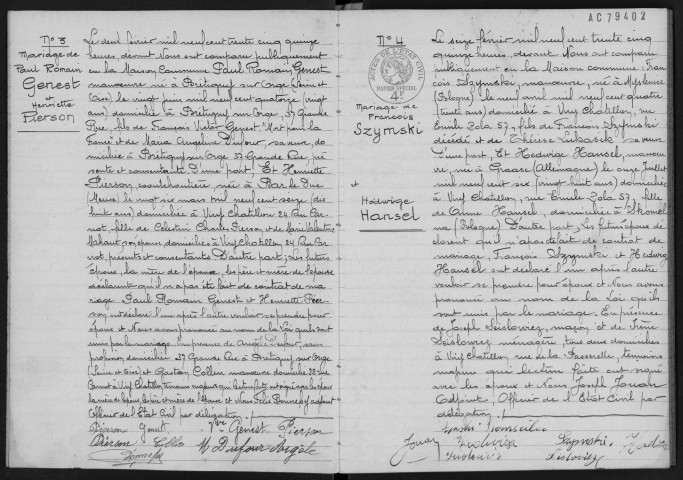 N° 3
Mariage de
Paul Romain
Genest
et
Henriette
Pierson
Le deux février mil neuf cent trente cinq quinze
heures, devant Nous ont comparu publiquement
en la Maison Commune Paul Romain Genest
manœuvre né à Brétigny sur Orge Seine et
Oise, le vingt juin mil neuf cent quatorze (vingt
ans) domicilié à Brétigny sur Orge, 37 Grande
Rue, fils de François Victor Genest "Mort pour la
France" et de Maria Angeline Dufour, sa veuve, do
miciliée à Brétigny sur Orge 37 Grande Rue, pré
sente et consentante D'une part, Et Henriette
Pierson, née à Bar le Duc
(Meuse) le mai mil neuf cent seize (dix
huit ans) domiciliée à Viry Chatillon 24 Rue Car
not, fille de Célestin Charles Pierson et de Marie Valentine
son épouse, domiciliés à Viry Chatillon 24 Rue Car
not, présents et consentants D'autre part; Les futurs
époux, la mère de l'époux, les père et mère de l'épouse
déclarent qu'il n'a pas été fait de contrat de ma
riage Paul Romain Genest et Henriette Pier
son ont déclaré l'un après l'autre vouloir se prendre pour
époux et Nous avons prononcé au nom de la Loi qu'ils sont
unis par le mariage En présence de Angèle Dufour, sans
profession domiciliée 37 Grande Rue à Brétigny sur Orge
(Seine et Oise) et Gaston Collin manœuvre domicilié 22 rue
Carnot à Viry Chatillon témoins majeurs qui lecture faite ont signé avec les époux
la mère de l'époux, les père et mère de l'épouse et Nous Félix adjoint
Officier de l'Etat Civil par délégation.
Pierson Genest Vve Genest Pierson
Pierson Collin M Dufour Angèle
AC79402
N° 4
ACTES DE L'ETAT CIVIL
PAPIER SPÉCIAL
Mariage de
François
Szymski
et
Hedwige
Hansel
Le seize février mil neuf cent trente cinq
quinze heures, devant Nous ont comparu
publiquement en la Maison commune: Fran
çois Szymski, manœuvre, né à
(Pologne) le neuf avril mil neuf cent quatre
(trente ans) domicilié à Viry Chatillon, rue
Emile Zola 57, fils de François Szymski
décédé et de Thérèse Lukasik sa veuve
D'une part, Et Hedwige Hansel, manœu
vre, née à Graase (Allemagne) le onze juillet
mil neuf cent six (vingt huit ans) domiciliée
à Viry Chatillon, rue Emile Zola 57, fille
de Anne Hansel, domiciliée à
(Pologne) D'autre part, Les futurs époux dé
clarent qu'il n'a pas été fait de contrat de
mariage, François Szymski et Hedwige
Hansel ont déclaré l'un après l'autre
vouloir se prendre pour époux et Nous avons
prononcé au nom de la Loi qu'ils
sont unis par le mariage. En présence
de Joseph maçon et de Irène
ménagère, tous deux domiciliés
à Viry Chatillon rue de la Passerelle, témoins
majeurs qui lecture faite ont signé
avec les époux et Nous Joseph Jouan
Adjoint, Officier de l'Etat Civil par
délégation.
Jouan Szymski